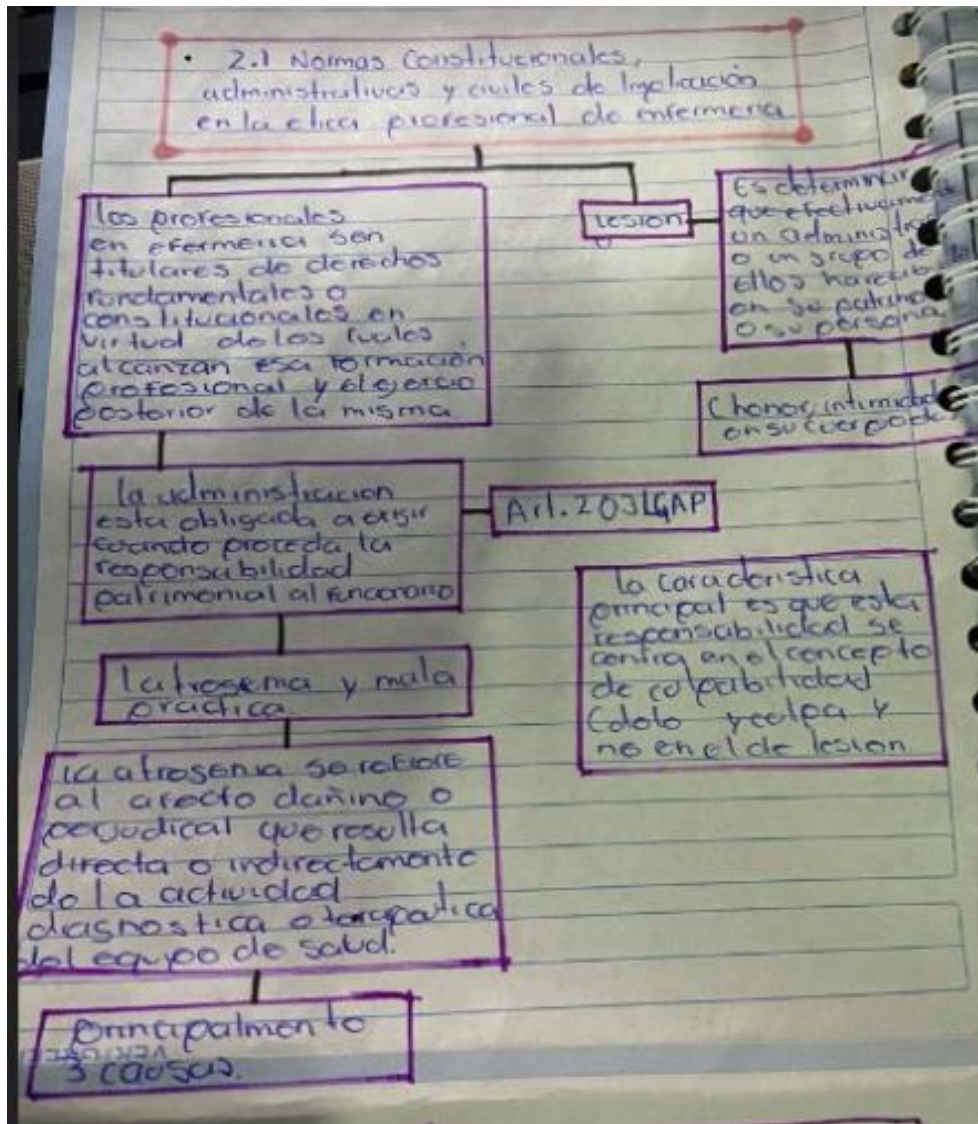 • 2.1 Normas Constitucionales,
administrativas y civiles de Implicación
en la etica profesional de enfermeria
los profesionales
en efermeria son
titulares de derechos
fundamentales o
constitucionales en
virtud de los cuales
alcanzan esa formación
profesional y el ejercio
posterior de la misma
lesion
Es determinar
que efectivament
un administra
o un grupo de
ellos ha recib
en su patrimo
o su persona
(honor, intimidad
en su cuerpo
la administracion
esta obligada a exigir
cuando proceda, la
responsabilidad
patrimonial al funcionario
Art. 203 LGAP
la caracteristica
principal es que esta
responsabilidad se
centra en el concepto
de culpabilidad
(dolo y culpa y
no en el de lesion
Iatrosenia y mala
practica.
la atrosenia se refiere
al afecto dañino o
perjudical que resulta
directa o indirectamente
de la actividad
diagnostica o terapeutica
del equipo de salud.
principalmente
3 causas.